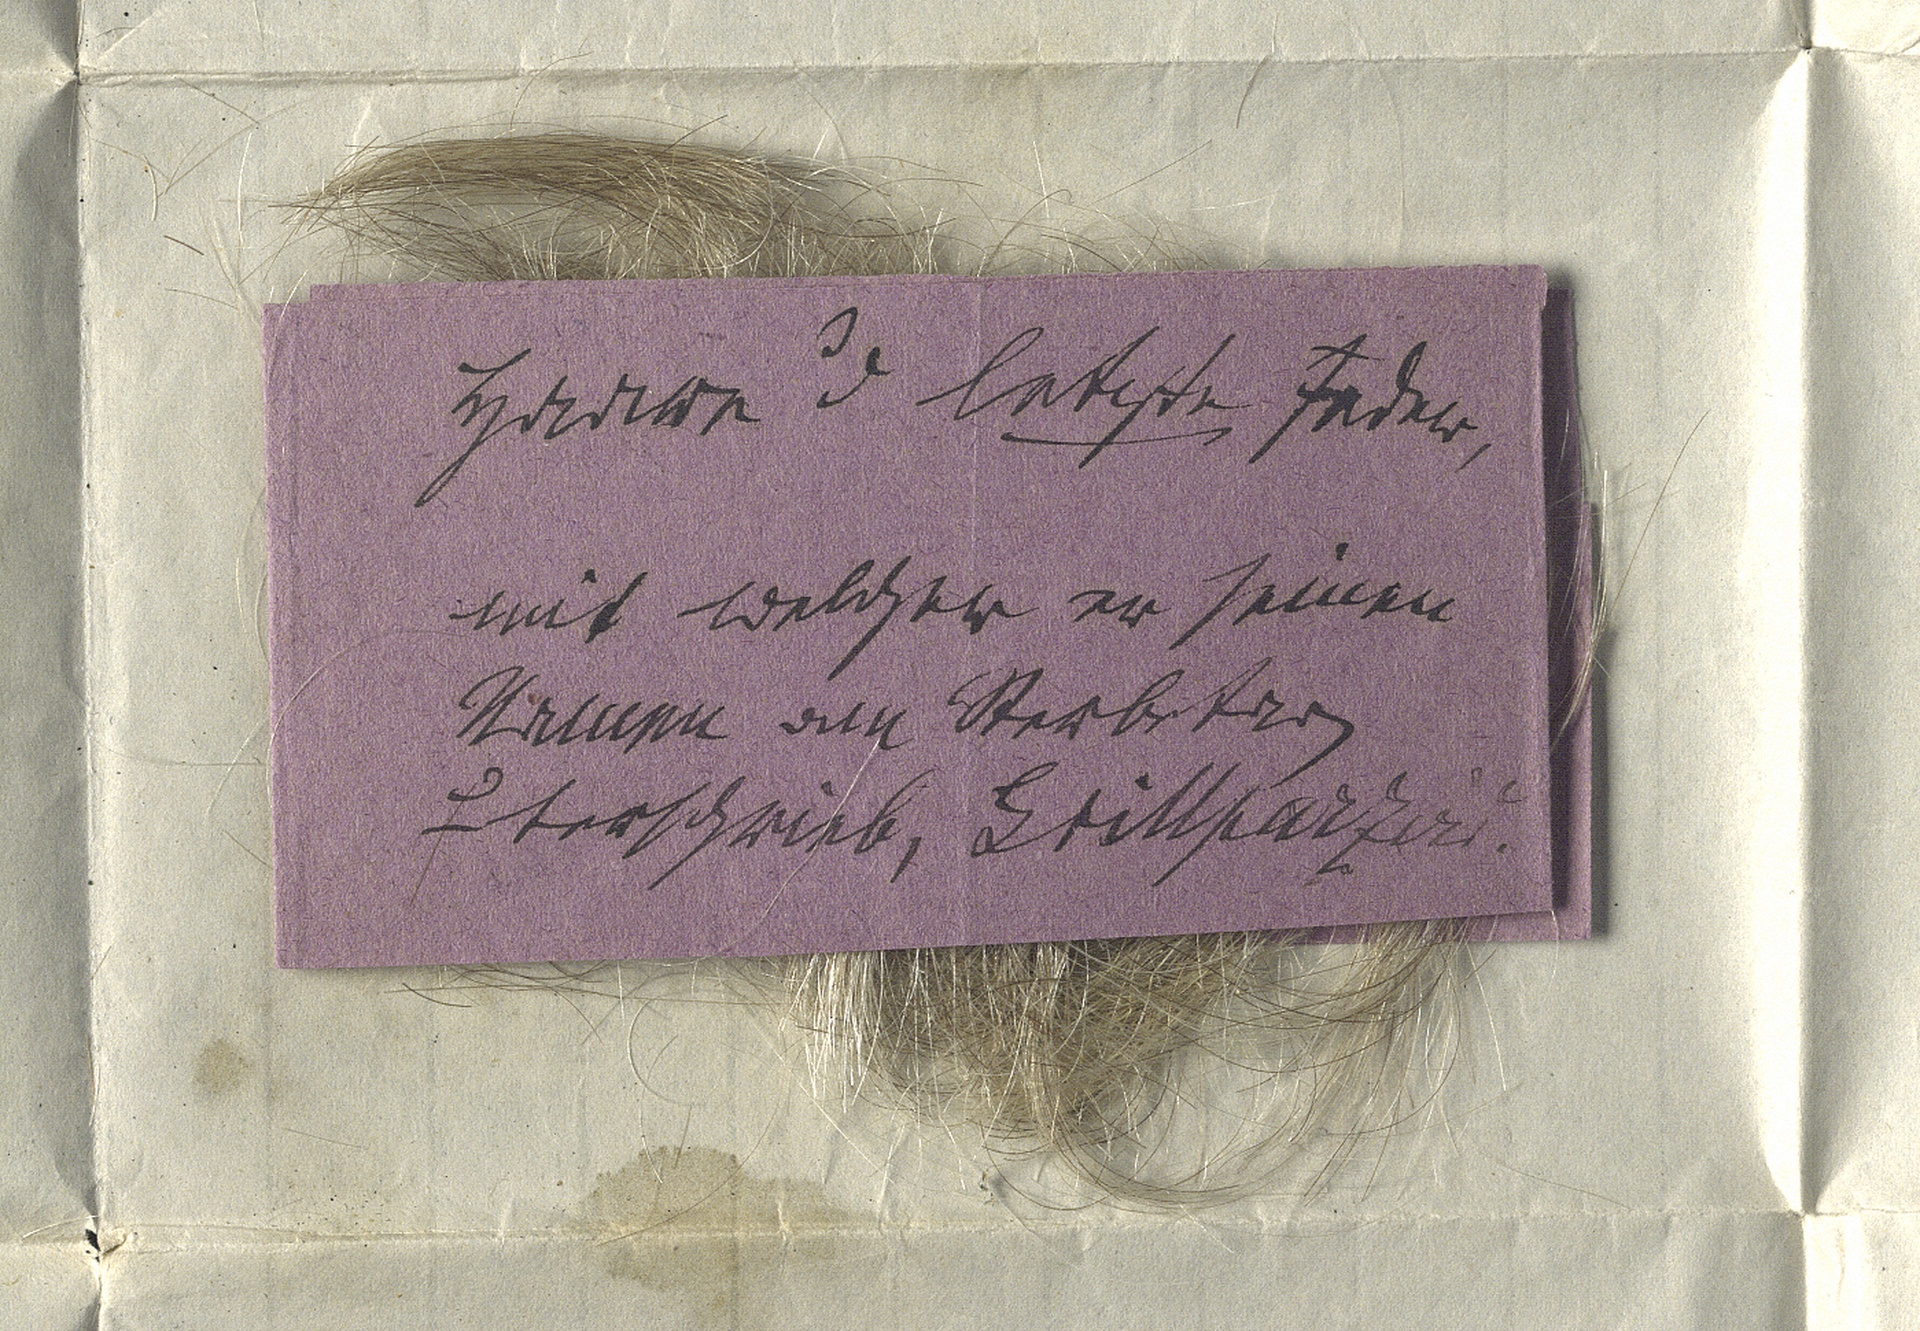 Haare & letzte Feder,
mit welcher er seinen
Namen am Sterbetag
überschrieb, Grillparzers.